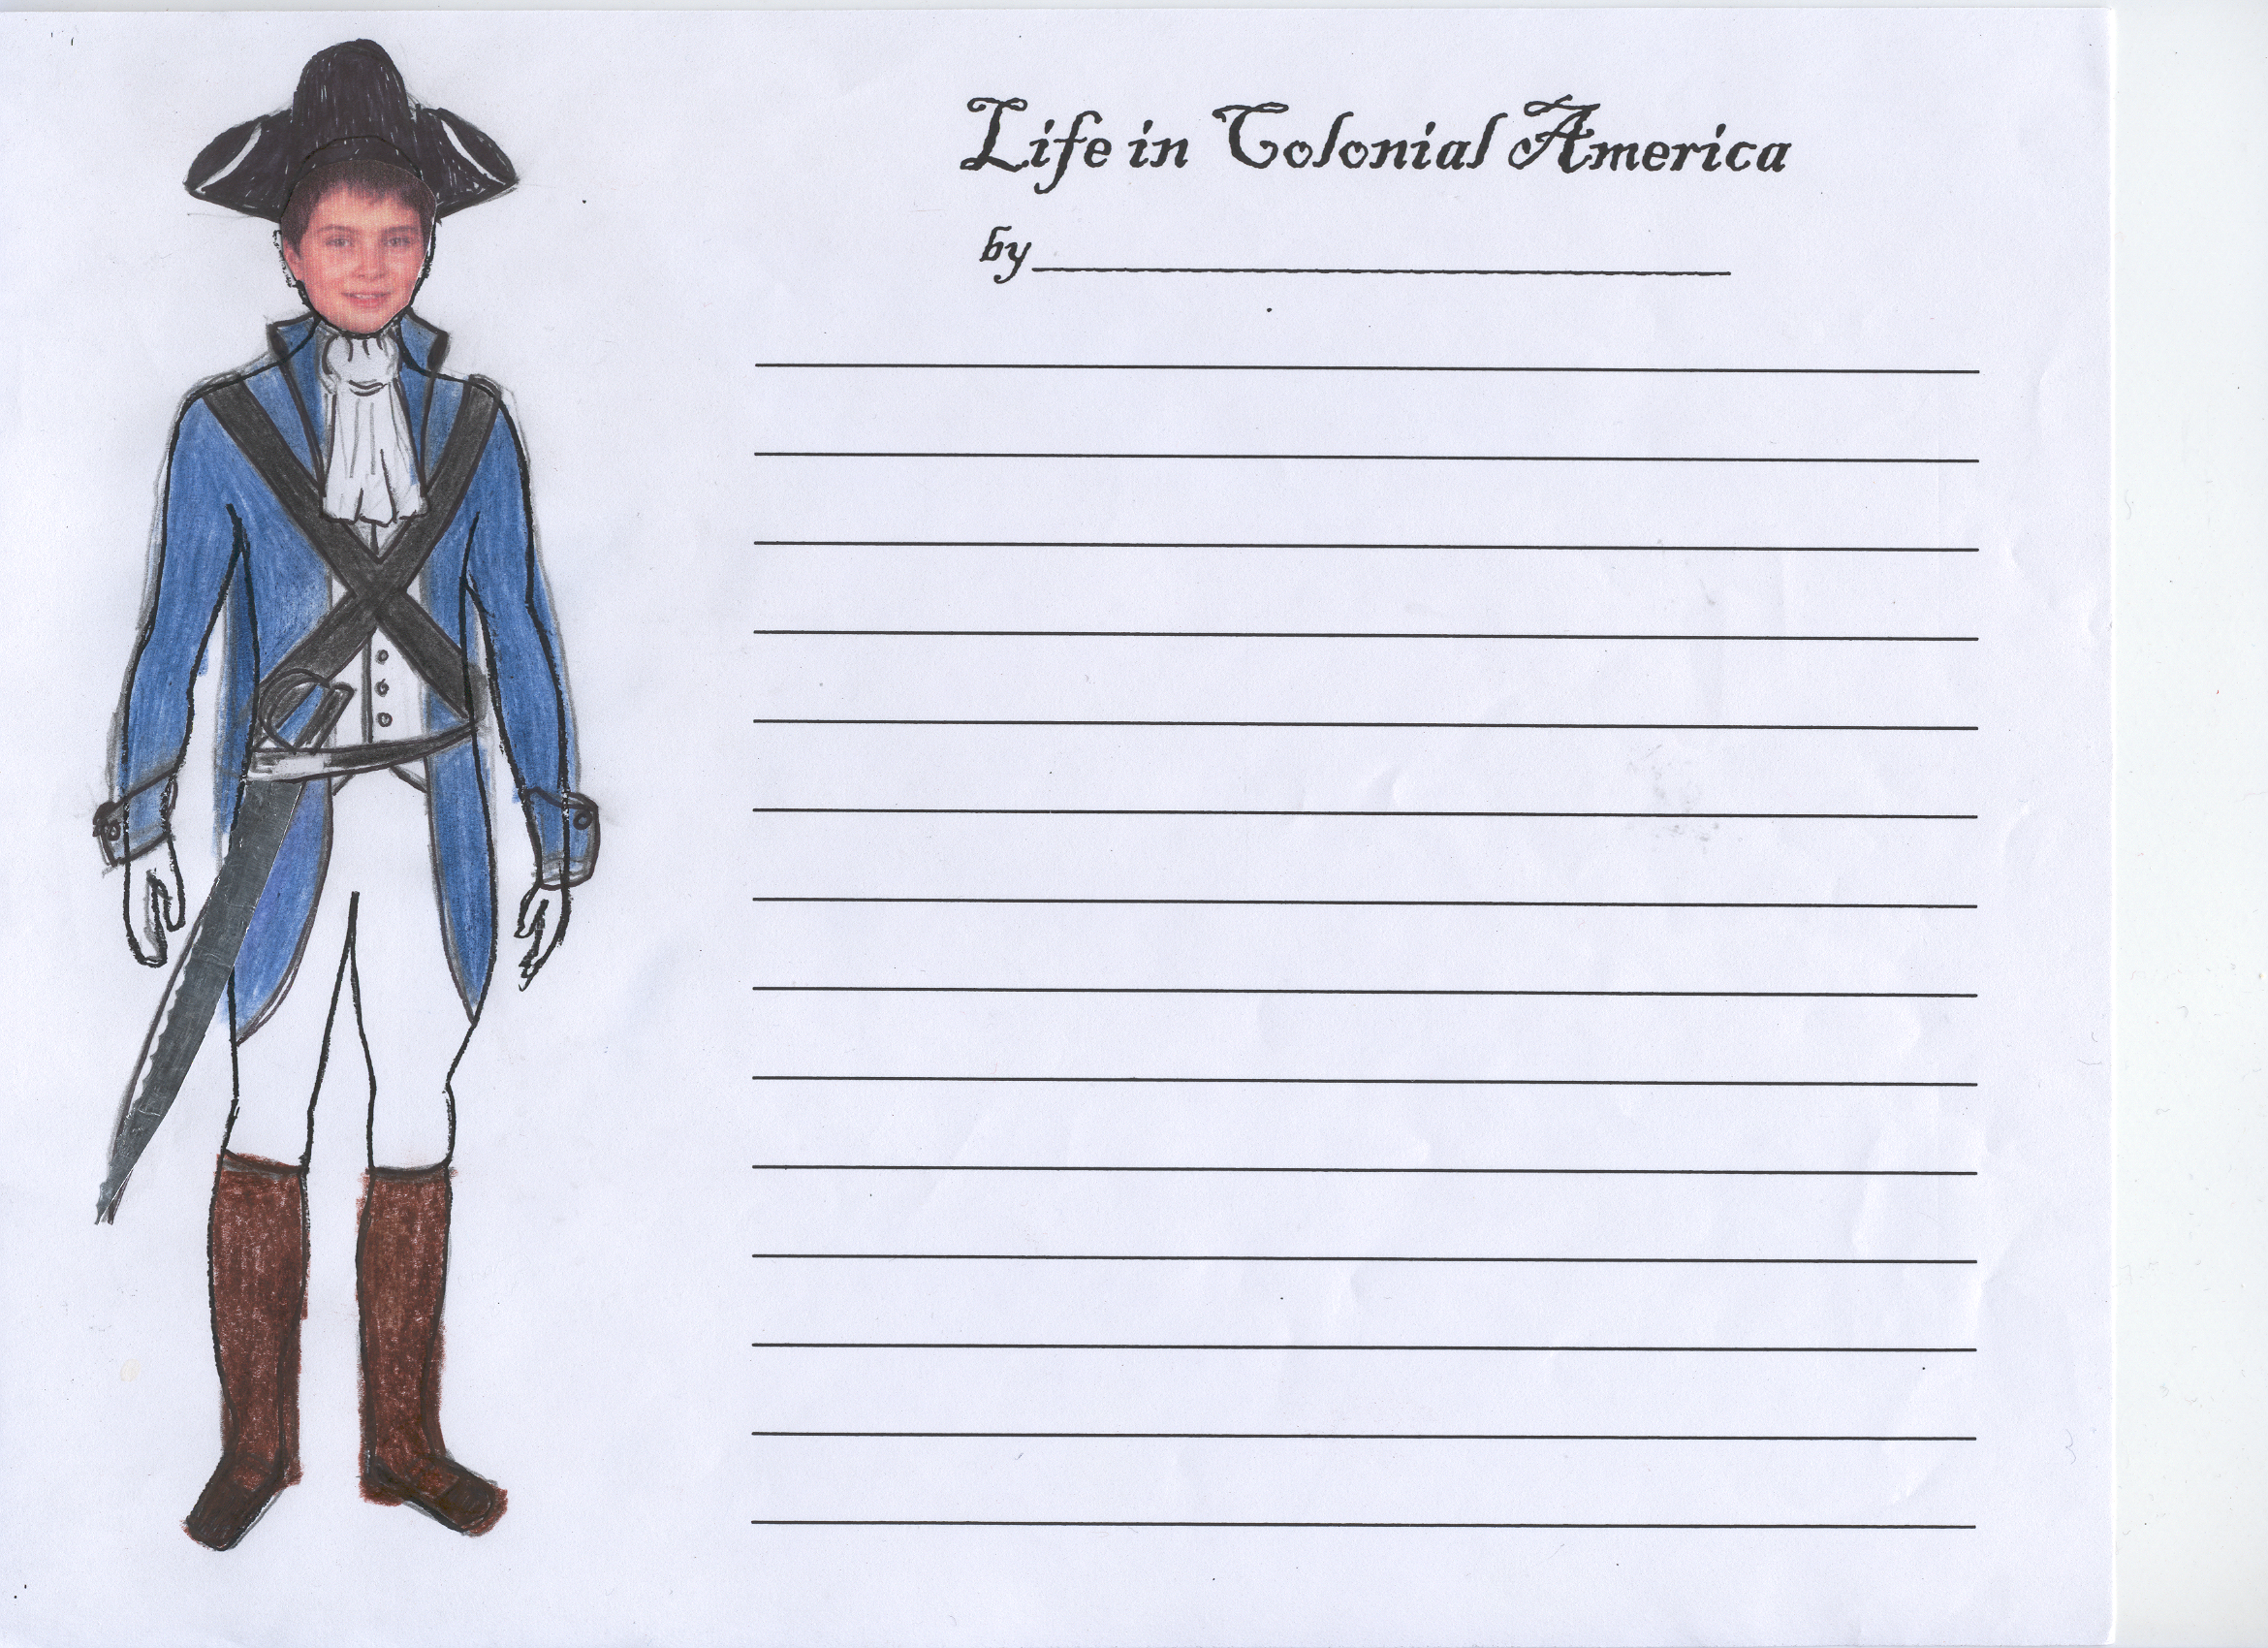 Life in Colonial America
by